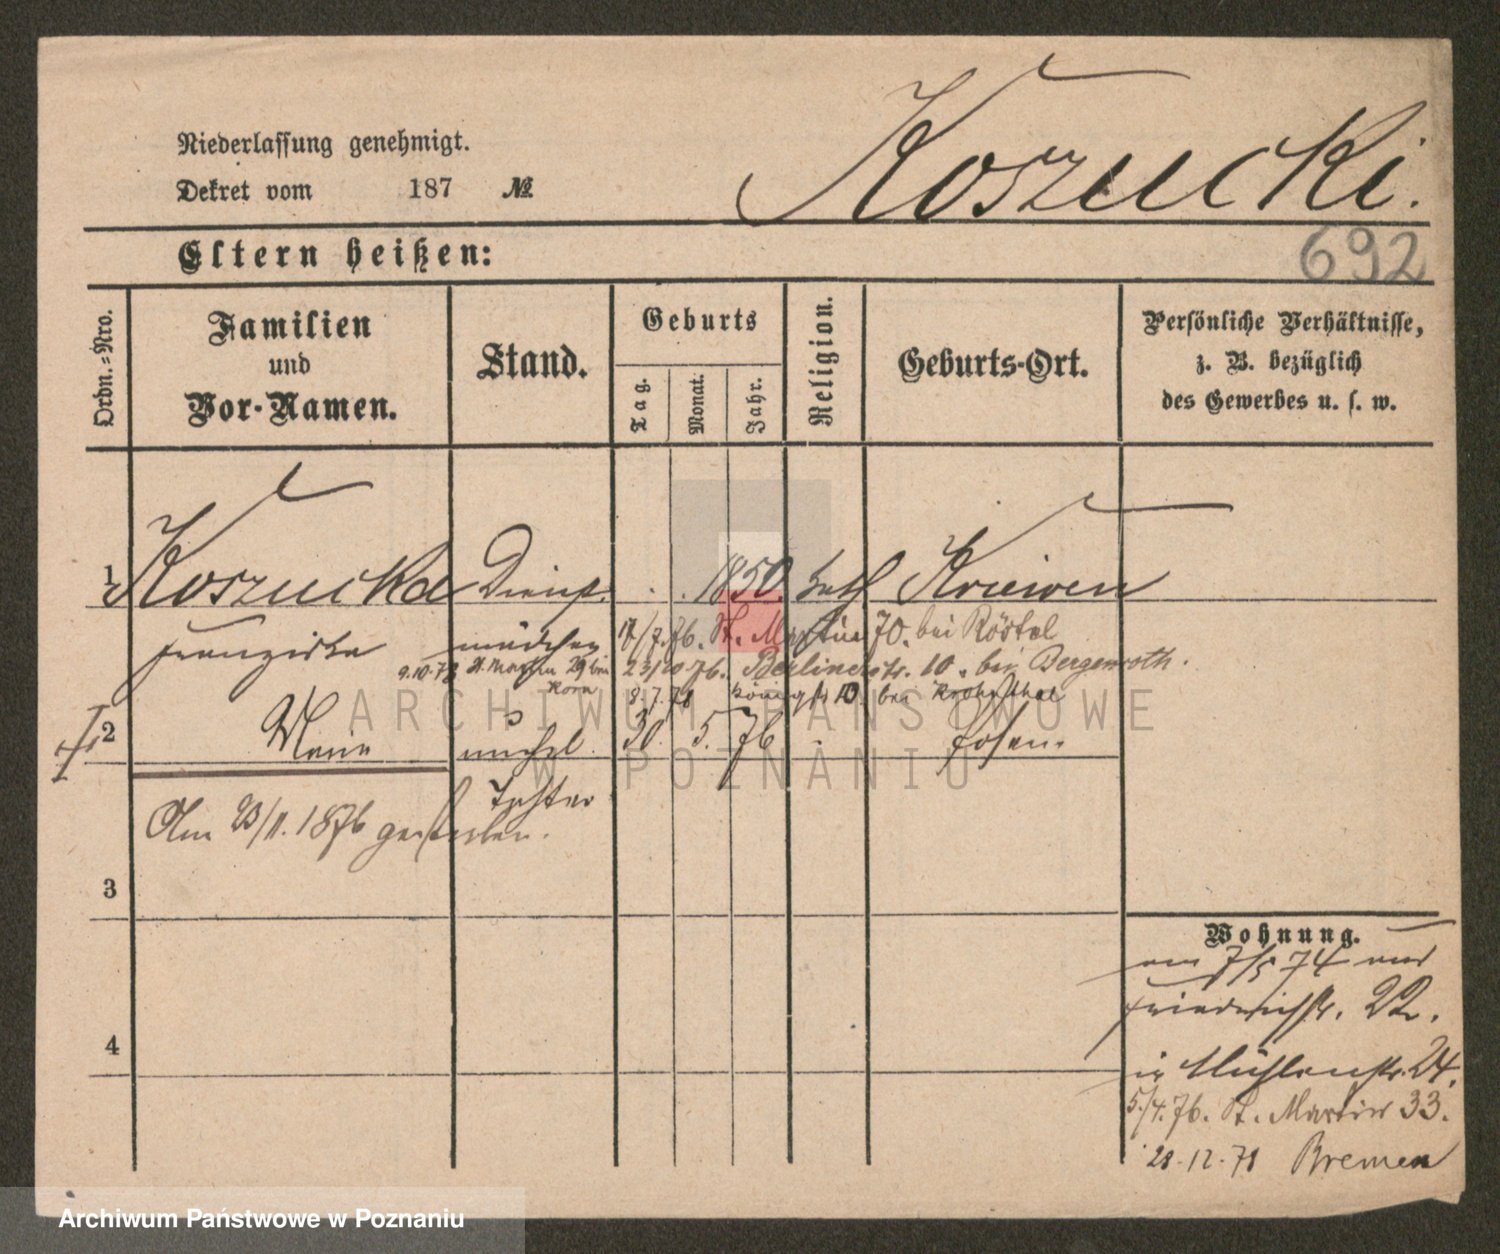 Koszucki.
Niederlassung genehmigt.
Dekret vom 187 №
692
Eltern heißen:
Ordn.-Nro.
Familien
und
Vor-Namen.
Stand.
Geburts
Tag.
Monat.
Jahr.
Religion.
Geburts-Ort.
Persönliche Verhältnisse,
z. B. bezüglich
des Gewerbes u. s. w.
1 Koszucka Dienst 1850. kath Kriewen
Franziska mädchen 17/7.76. St. Martin 70. bei Röstel
23/10 76. Berlinerstr. 10. bei Bergenroth.
9.10.78 St. Martin 29 bei
Korn 8.7.78 Königstr 10. bei
2 Marie unehel. 30. 5. 76 Posen.
Tochter
Am 23/11. 1876 gestorben.
3
4
Wohnung.
7/5 74
Friedrichstr. 22.
in Mühlenstr. 24.
5./4. 76. St. Martin 33.
28.12.78 Bremen
ARCHIWUM PAŃSTWOWE
W POZNANIU
Archiwum Państwowe w Poznaniu